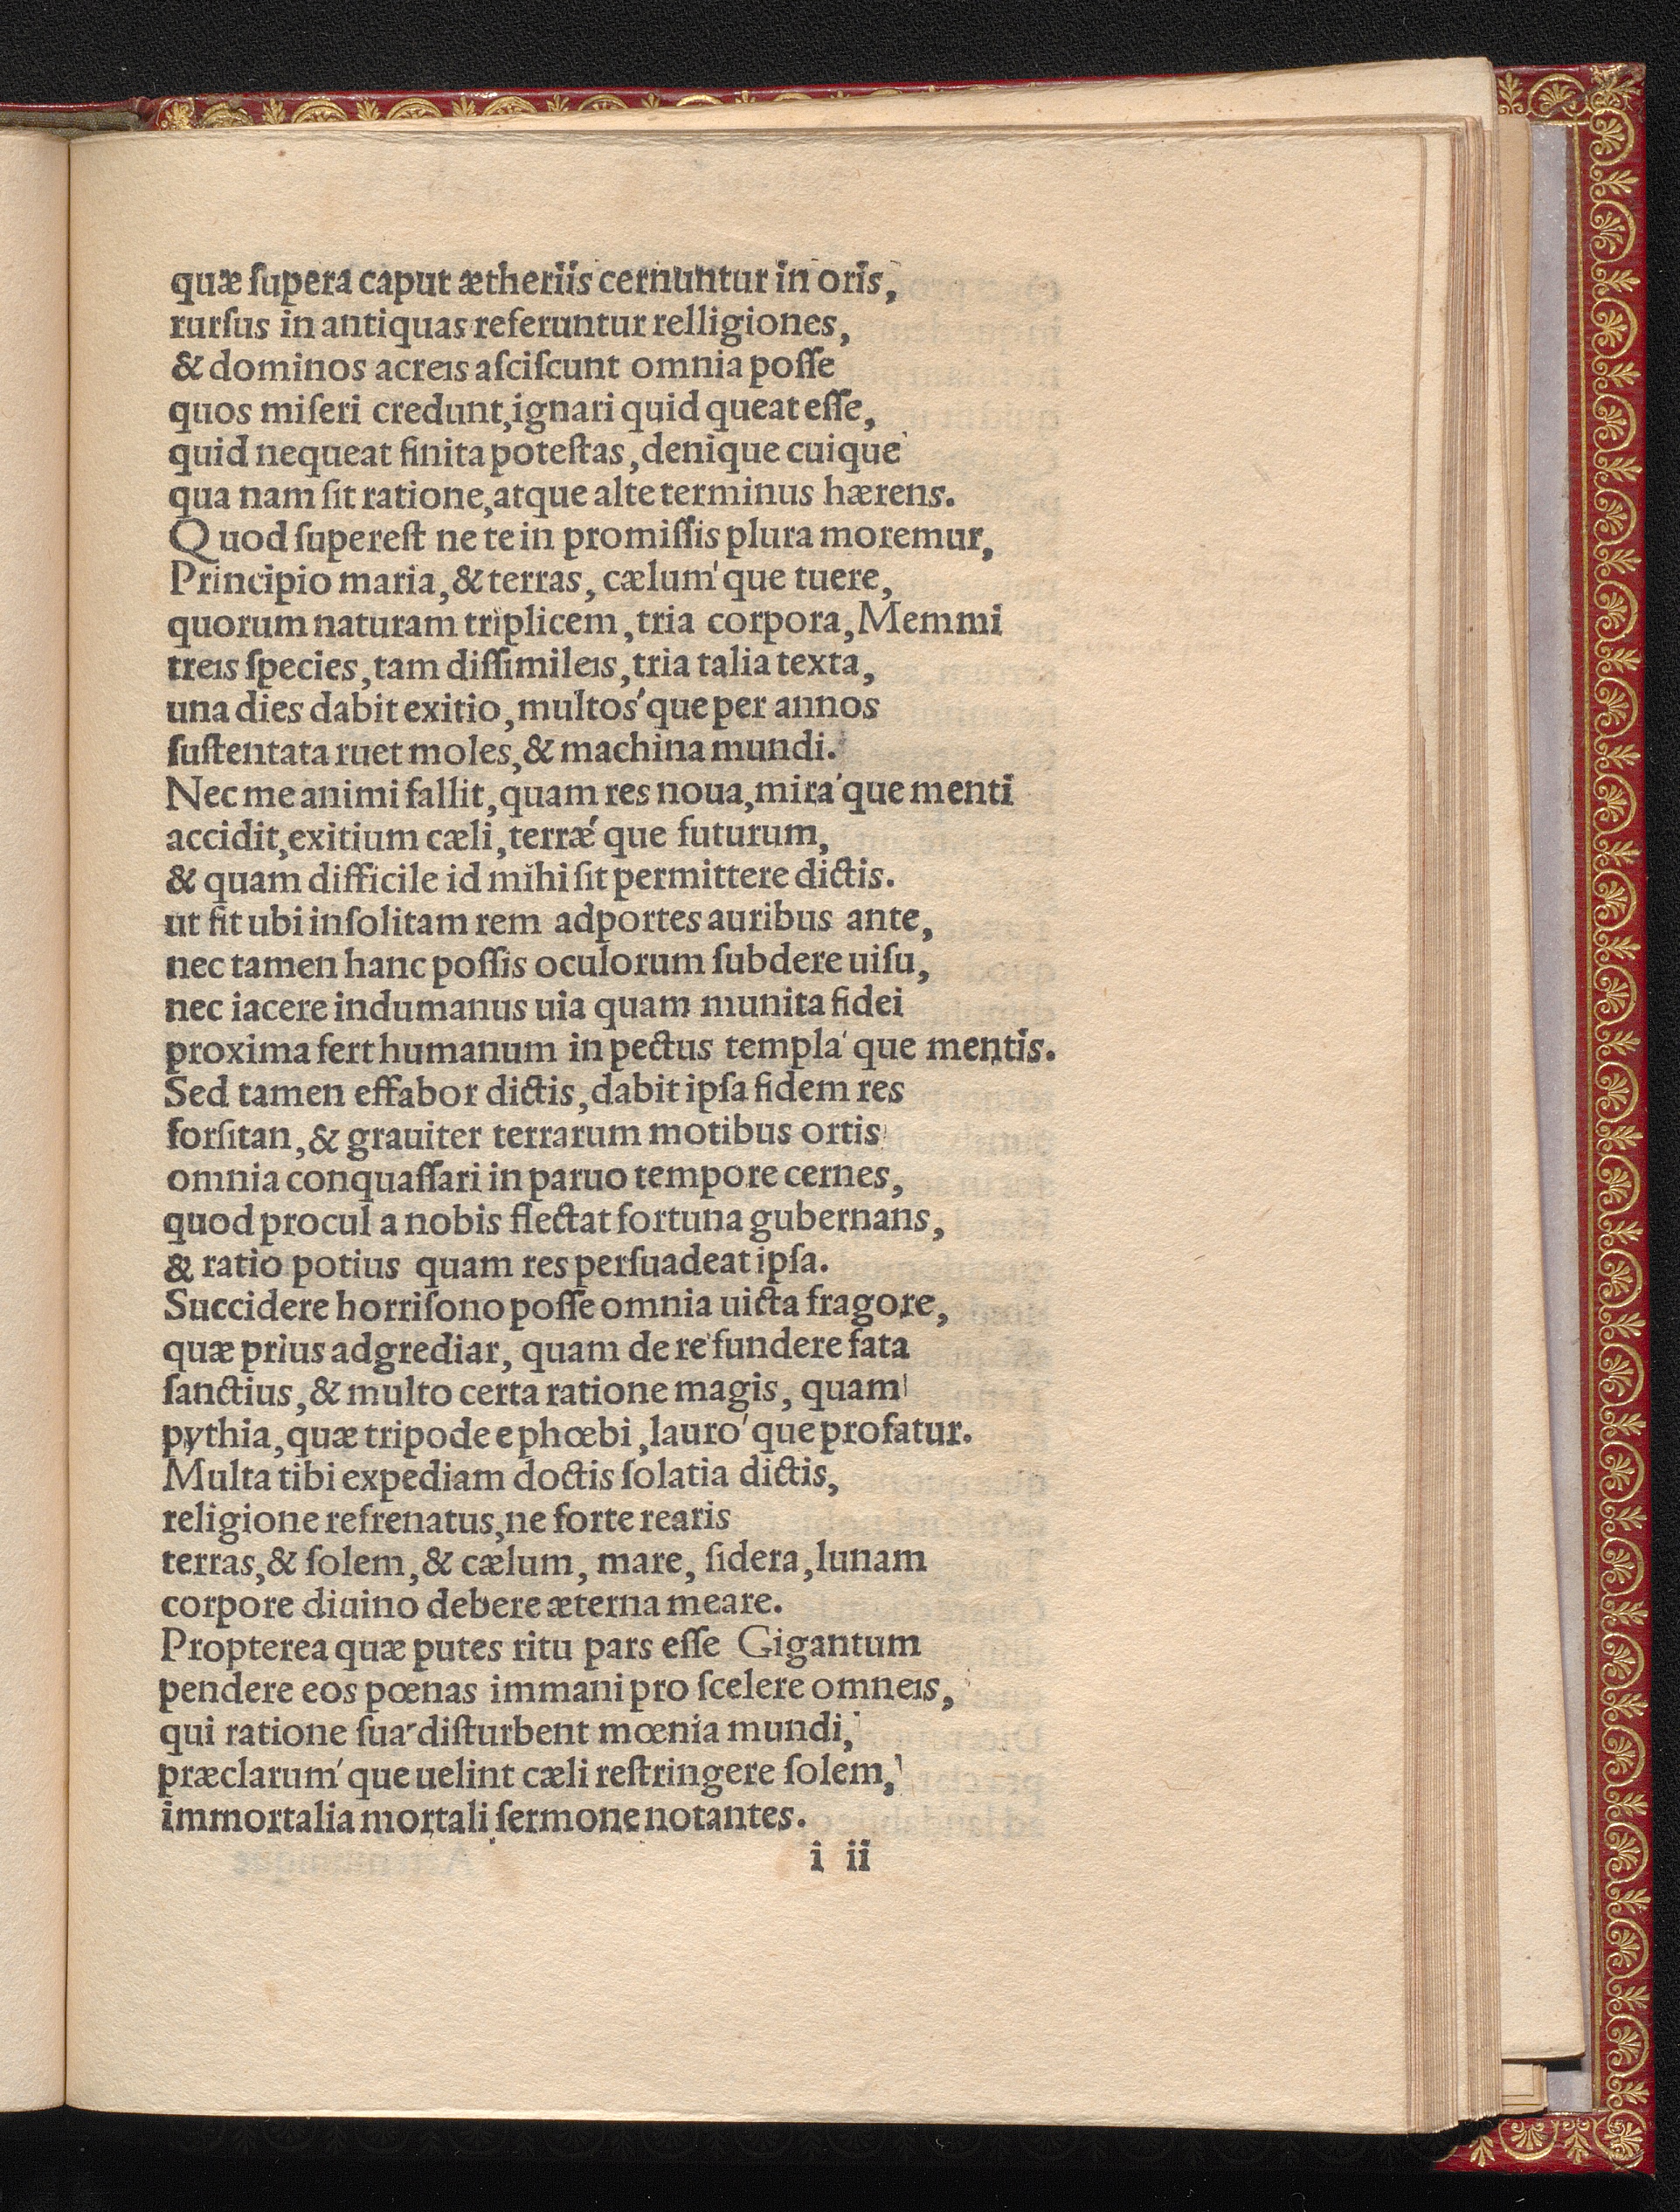 quæ ſupera caput ætheriis cernuntur in oris,
rurſus in antiquas referuntur relligiones,
& dominos acreis aſciſcunt omnia poſſe
quos miſeri credunt, ignari quid queat eſſe,
quid nequeat finita poteſtas, denique cuique
qua nam ſit ratione, atque alte terminus hærens.
Quod ſupereſt ne te in promiſſis plura moremur,
Principio maria, & terras, cælum'que tuere,
quorum naturam triplicem, tria corpora, Memmi
treis ſpecies, tam diſſimileis, tria talia texta,
una dies dabit exitio, multos'que per annos
ſuſtentata ruet moles, & machina mundi.
Nec me animi fallit, quam res noua, mira'que menti
accidit, exitium cæli, terræ'que futurum,
& quam difficile id mihi ſit permittere dictis.
ut fit ubi inſolitam rem adportes auribus ante,
nec tamen hanc poſſis oculorum ſubdere uiſu,
nec iacere indumanus uia quam munita fidei
proxima fert humanum in pectus templa'que mentis.
Sed tamen effabor dictis, dabit ipſa fidem res
forſitan, & grauiter terrarum motibus ortis
omnia conquaſſari in paruo tempore cernes,
quod procul a nobis flectat fortuna gubernans,
& ratio potius quam res perſuadeat ipſa.
Succidere horriſono poſſe omnia uicta fragore,
quæ prius adgrediar, quam de re fundere fata
ſanctius, & multo certa ratione magis, quam
pythia, quæ tripode e phœbi, lauro'que profatur.
Multa tibi expediam doctis ſolatia dictis,
religione refrenatus, ne forte rearis
terras, & ſolem, & cælum, mare, ſidera, lunam
corpore diuino debere æterna meare.
Propterea quæ putes ritu pars eſſe Gigantum
pendere eos pœnas immani pro ſcelere omneis,
qui ratione ſua diſturbent mœnia mundi,
præclarum'que uelint cæli reſtringere ſolem,
immortalia mortali ſermone notantes.
i ii